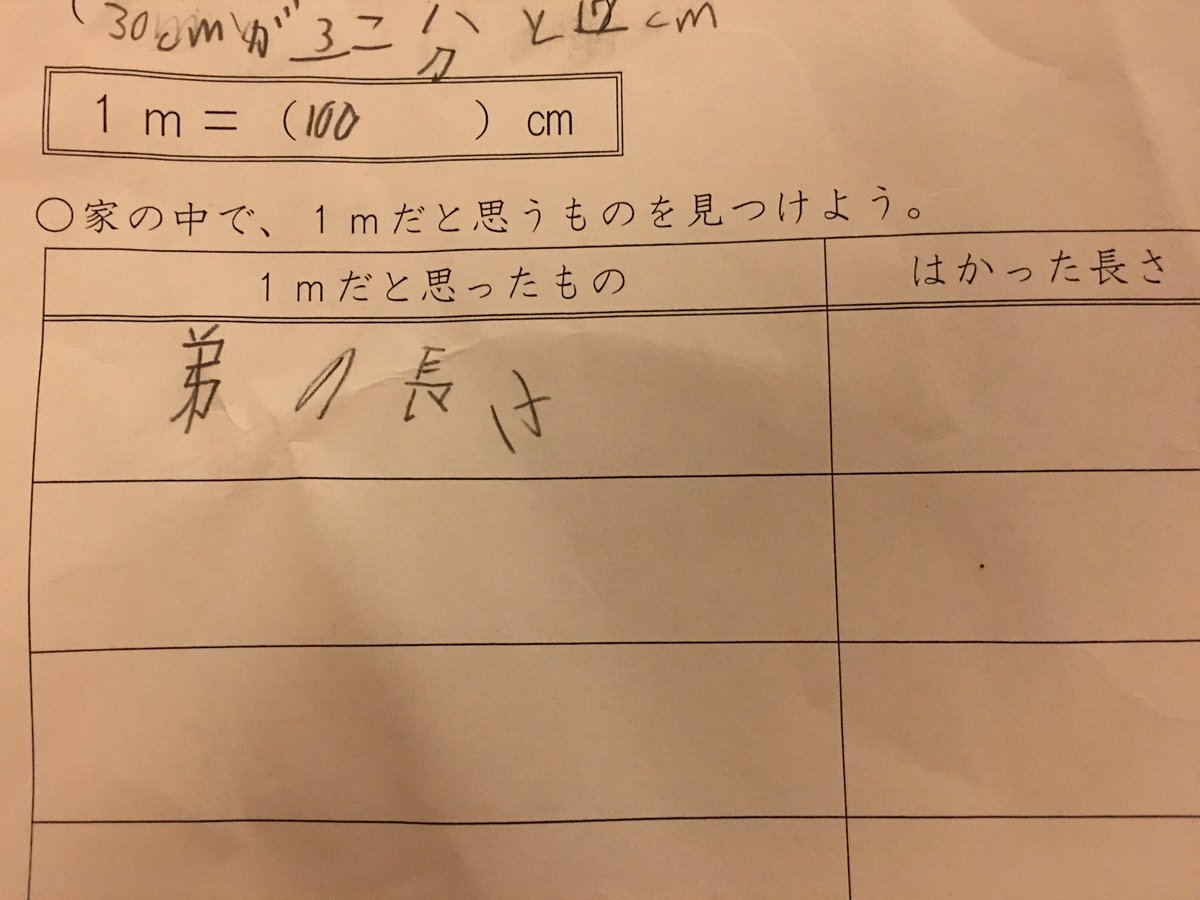 30cmが3こ分と12cm
1m=(100)cm
○家の中で、1mだと思うものを見つけよう。
1mだと思ったもの はかった長さ
弟の長さ